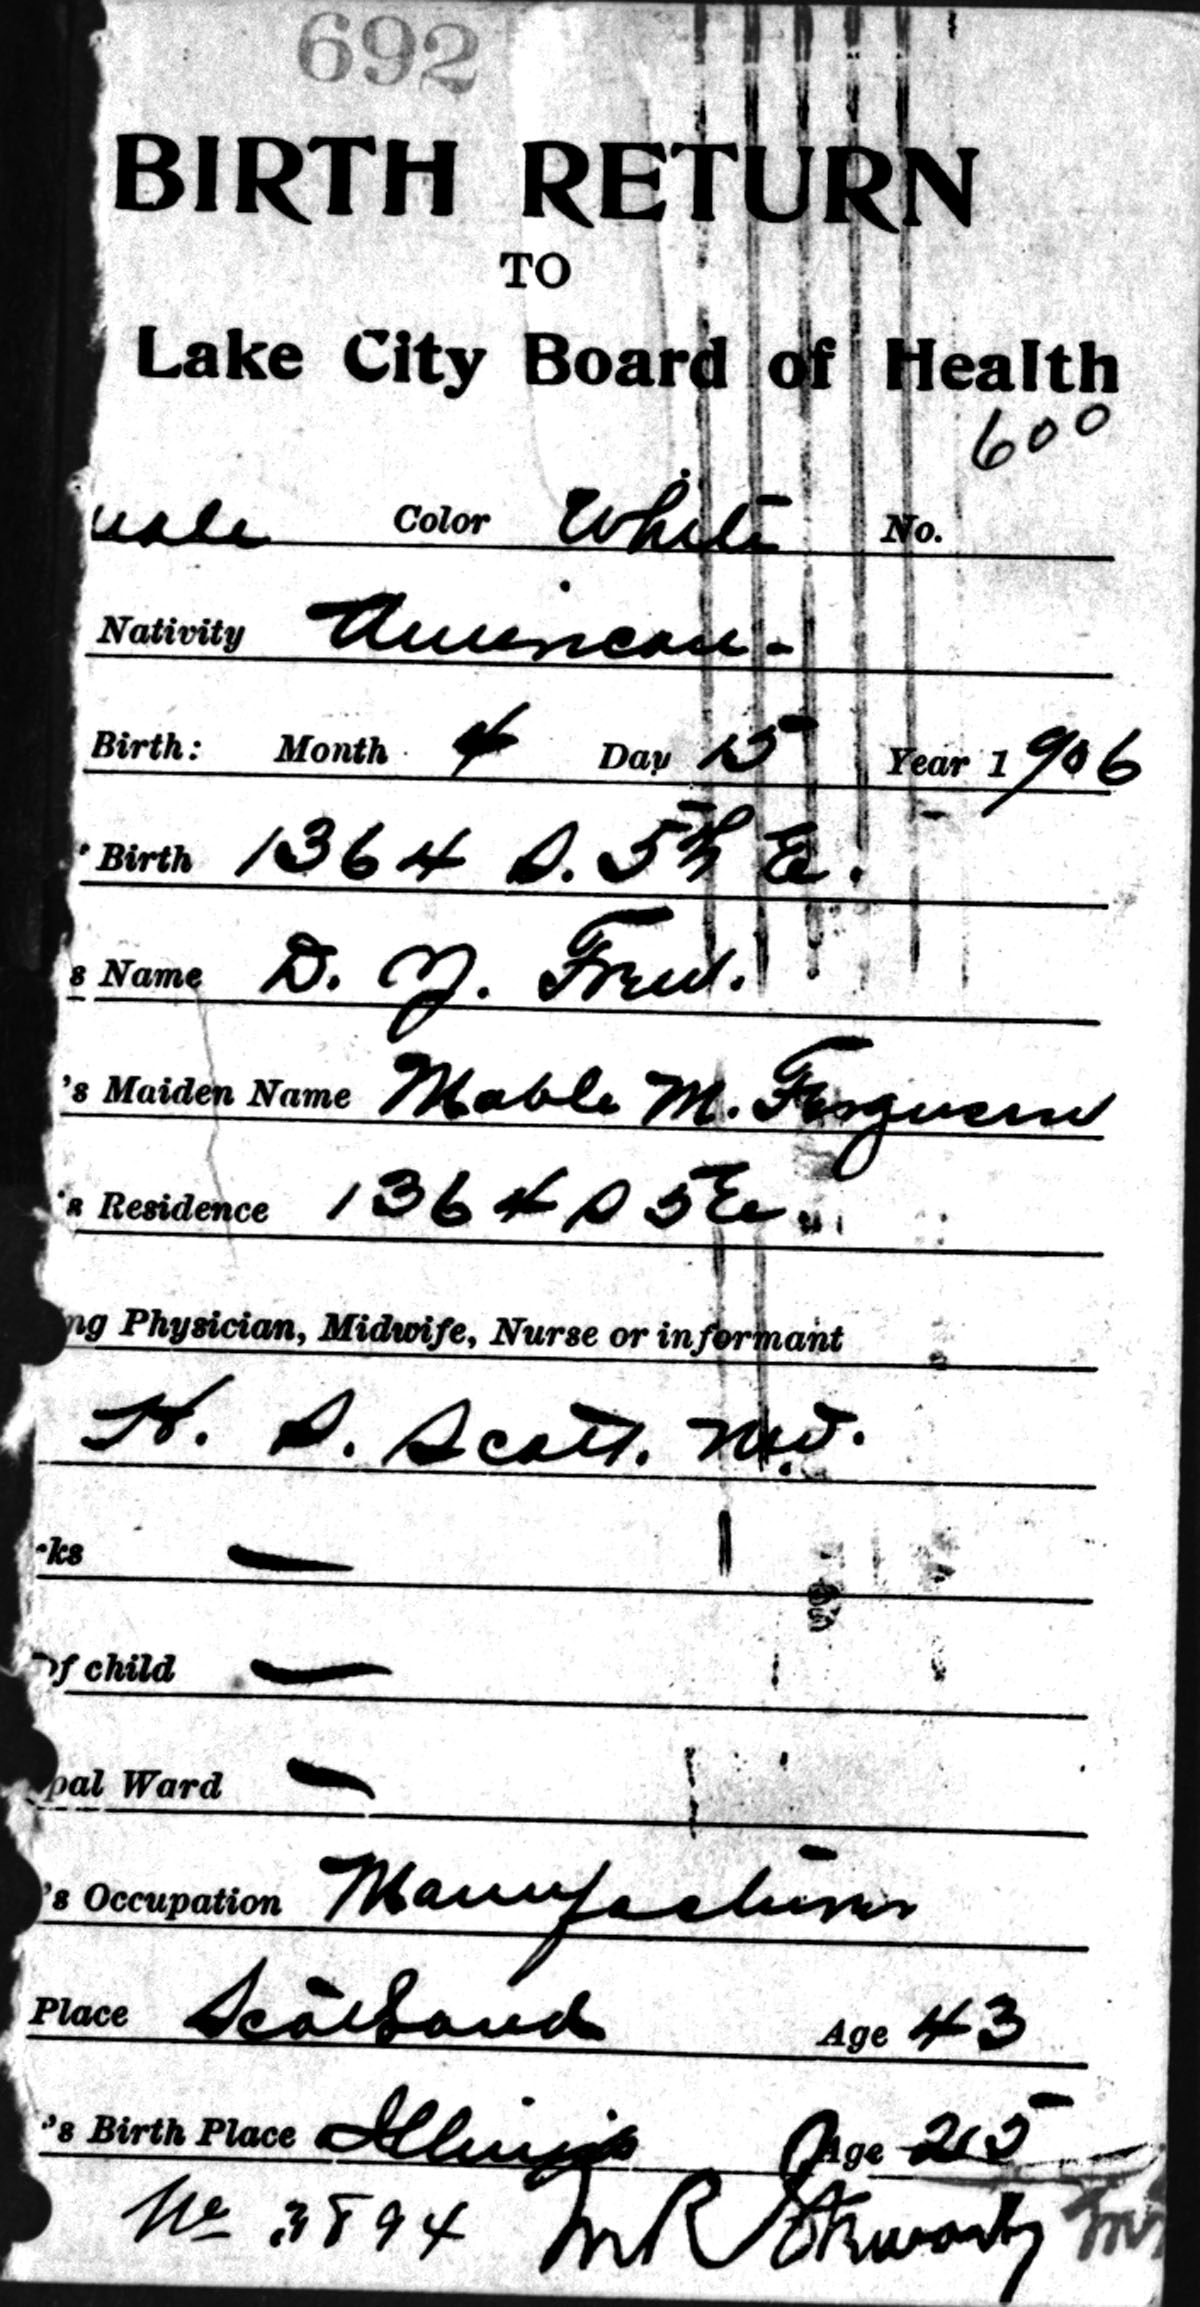 692
BIRTH RETURN
TO
Lake City Board of Health
600
male Color White No.
Nativity American -
Birth: Month 4 Day 15 Year 1906
Birth 1364 S. 5th E.
s Name D. Y. Frew.
's Maiden Name Mable M. Ferguson
's Residence 1364 S 5 E.
ng Physician, Midwife, Nurse or informant
H. S. Scott. M.D.
ks —
of child —
pal Ward —
's Occupation Manufacturer
Place Scotland Age 43
's Birth Place Illinois Age 25
No 3894 M R